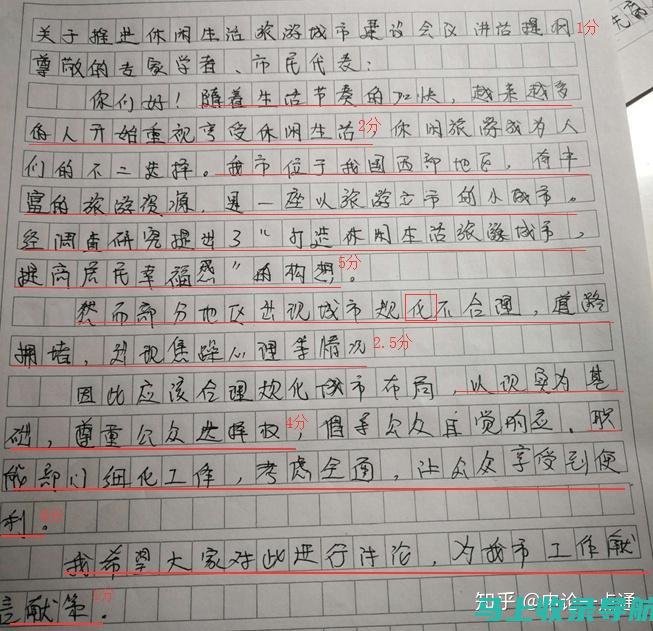 关于推进休闲生活旅游城市建设会议讲话提纲1分
尊敬的专家学者、市民代表:
你们好!随着生活节奏的加快,越来越多
的人开始重视享受休闲生活2分休闲旅游成为人
们的不二选择。我市位于我国西部地区,有丰
富的旅游资源,是一座以旅游立市的小城市。
经调查研究提出了"打造休闲生活旅游城市,
提高居民幸福感"的构想。5分
然而部分地区出现城市规化不合理,道路
拥堵,出现焦躁心理等情况2.5分
因此应该合理规化城市布局,以现实为基
础,尊重公众选择权4分,倡导公众自觉响应。职
能部门细化工作,考虑全通,让公众享受到便
利。
我希望大家对此进行讨论,为我市工作献
言献策。
知乎 @申论一点通
马上收录导航